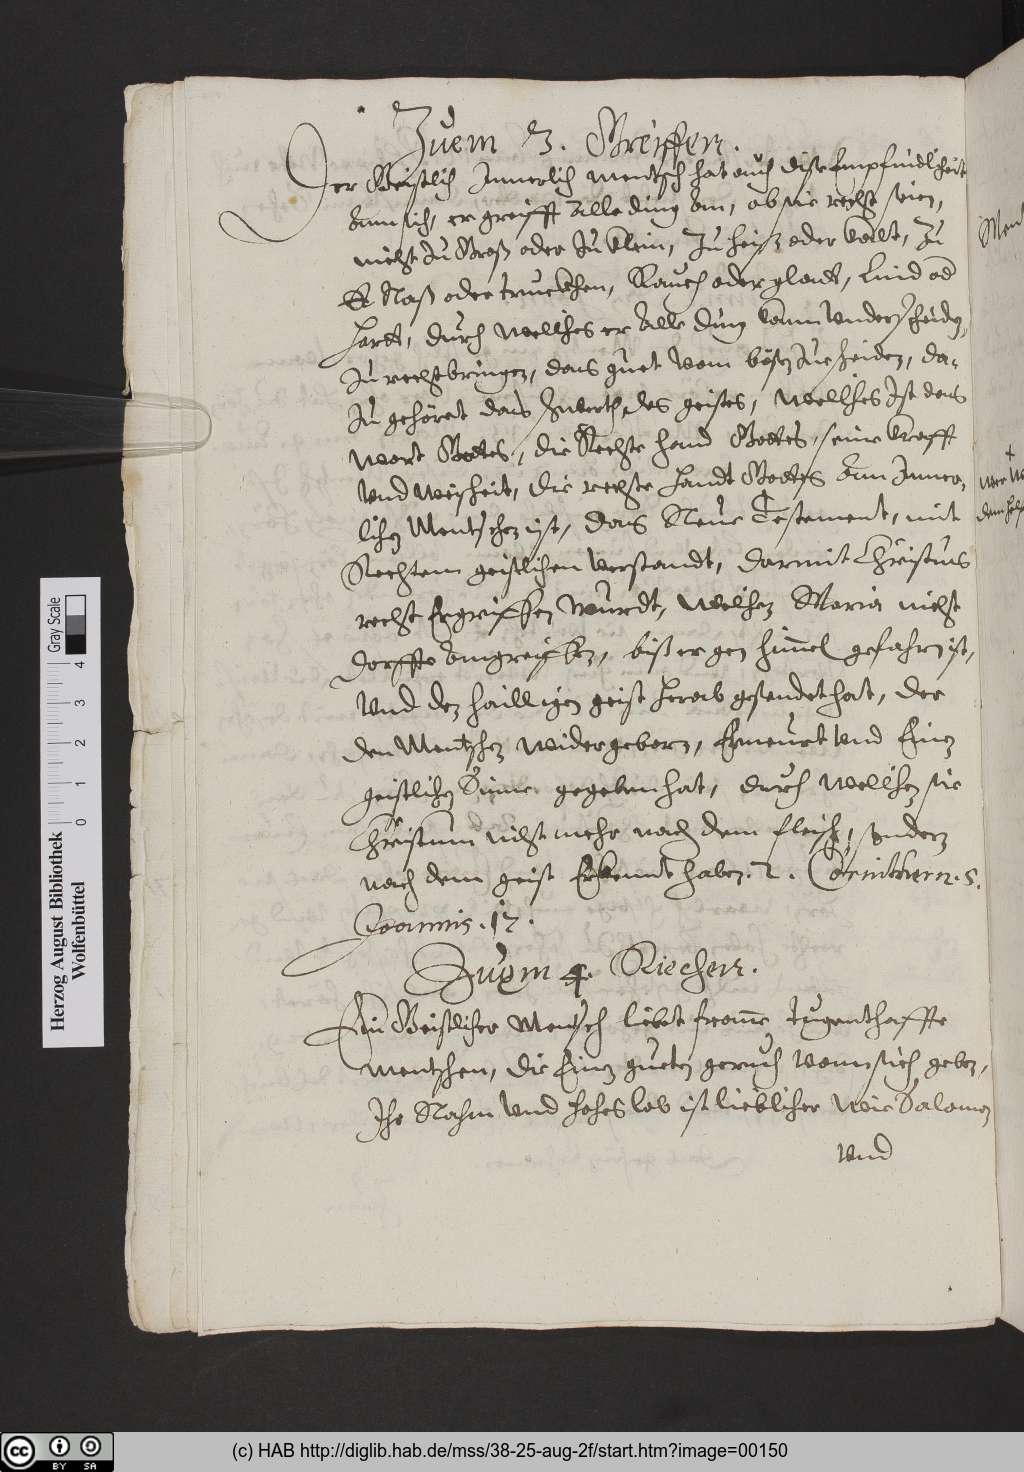 Zuem 3. Greiffen.
Der Geistlich Innerlich mentsch hat auch dise Empfindlicheit
ann sich, er greifft alle ding an, ob sie recht seien,
nicht zu Groß oder zu klein, zu heiß oder kallt, zu
Naß oder truckhen, Rauch oder gladt, lind od
hartt, durch wellches er alle ding kann underscheiden,
zu recht bringen, das guet vom bösen zue scheiden, da-
zu gehöret das schwerth des geistes, wellches ist das
wort Gottes, die Rechte hand Gottes, seine krafft
und weisheit, die rechte handt Gottes am Inner-
lichen Mentschen ist, das Neue Testament, mit
Rechtem geistlichen verstandt, darmit Christus
recht Ergriffen wurdt, welchen Maria nicht
dorffte angreiffen, biß er gen himel gefahrn ist,
und den hailligen geist herab gesendet hat, der
den Mentschen widergeborn, Erneurt und Einen
geistlichen Sinne gegeben hat, durch wellchen sie
Christum nicht mehr nach dem fleisch, sondern
nach dem geist Erkennt haben. 2. Corinthern. 5.
Joannis. 17.
Zuem 4. Riechen.
Ein Geistlicher Mentsch liebet frome tugenthaffte
mentschen, die Einen gueten geruch vonn sich geben,
Ihr Nahm und hohes lob ist lieblicher wie Salomon
und
Herzog August Bibliothek
Wolfenbüttel
0 1 2 3 4
Gray Scale
CC BY SA
(c) HAB http://diglib.hab.de/mss/38-25-aug-2f/start.htm?image=00150